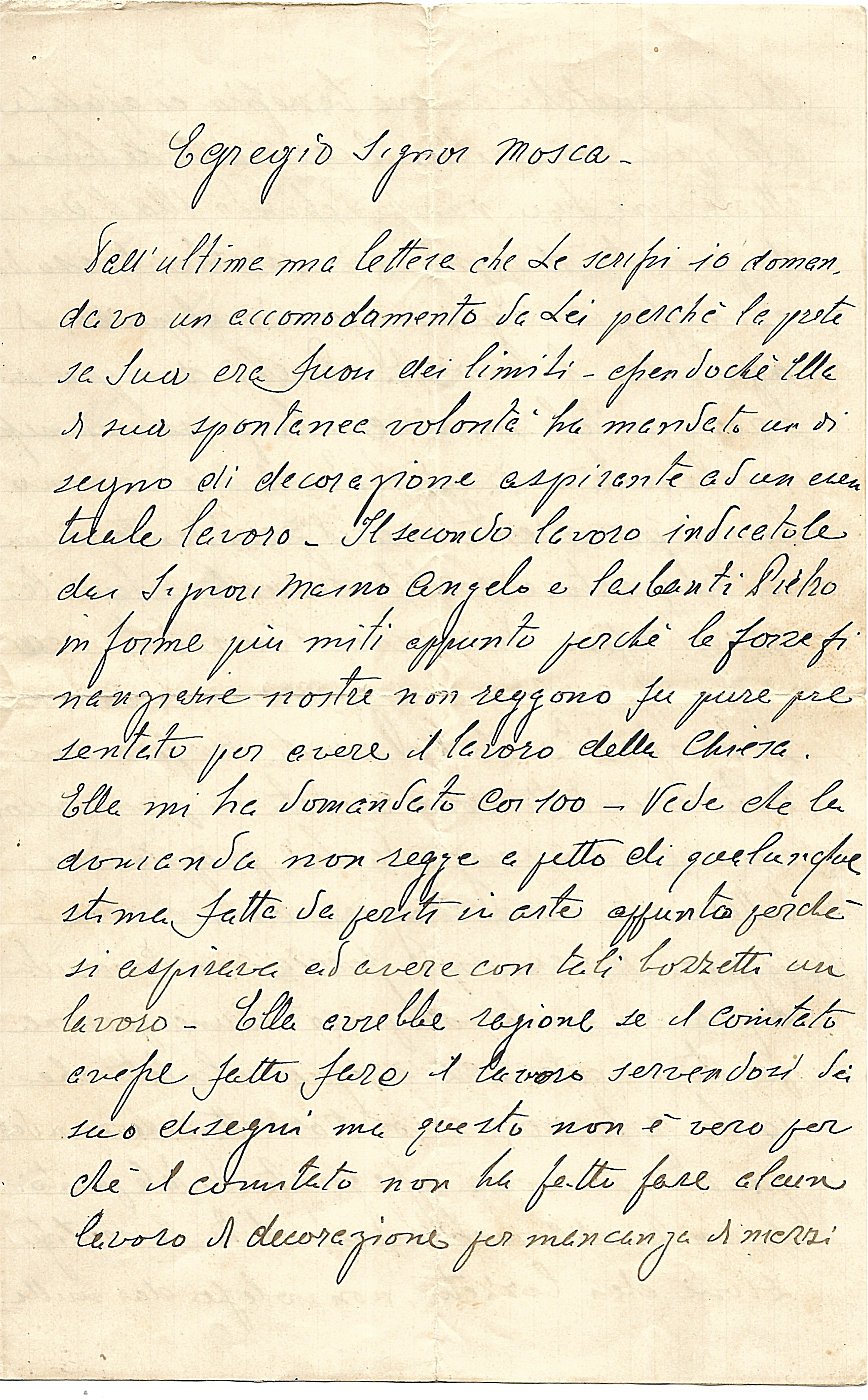 Egregio Signor Mosca -
Dall'ultima mia lettera che Le scrissi io doman
davo un accomodamento da Lei perchè la prete
sa Sua era fuori dei limiti - essendochè Ella
di sua spontanea volontà ha mandato un di
segno di decorazione aspirante ad un even
tuale lavoro - Il secondo lavoro indicatole
dai Signori Marno Angelo e Pietro
in forme più miti appunto perchè le forze fi
nanziarie nostre non reggono fu pure pre
sentato per avere il lavoro della Chiesa.
Ella mi ha domandato Cor 100 - Vede che la
domanda non regge a petto di qualunque
stima fatta da periti in arte appunto perchè
si aspirava ad avere con tali bozzetti un
lavoro - Ella avrebbe ragione se il comitato
avesse fatto fare il lavoro servendosi dei
suo disegni ma questo non è vero per
chè il comitato non ha fatto fare alcun
lavoro di decorazione per mancanza di mezzi